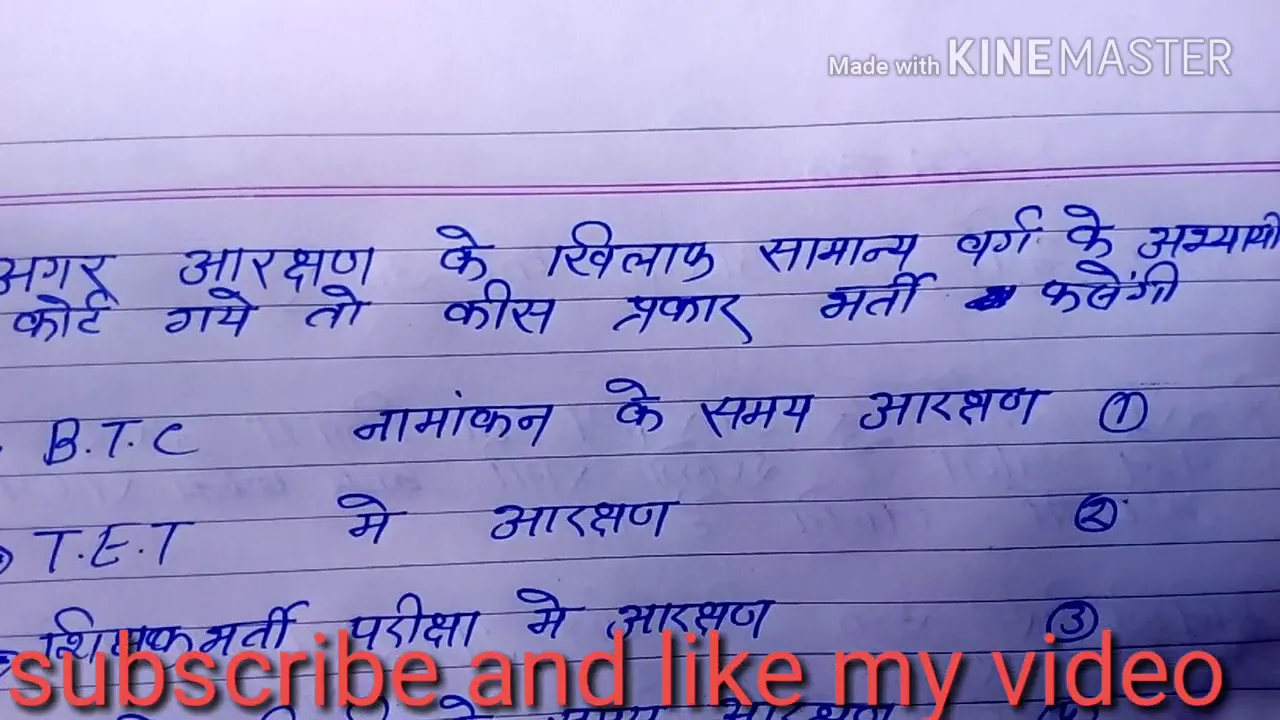 Made with KINEMASTER
अगर आरक्षण के खिलाफ सामान्य वर्ग के
कोर्ट गये तो कीस प्रकार भर्ती फसेंगी
B.T.C नामांकन के समय आरक्षण ①
T.E.T मे आरक्षण ②
शिक्षक भर्ती परीक्षा मे आरक्षण ③
subscribe and like my video
के समय आरक्षण